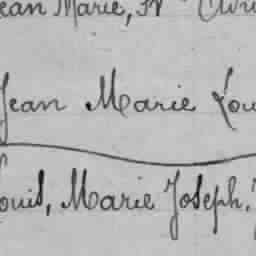 Jean Marie,
Jean Marie Lou
Louis, Marie Joseph.